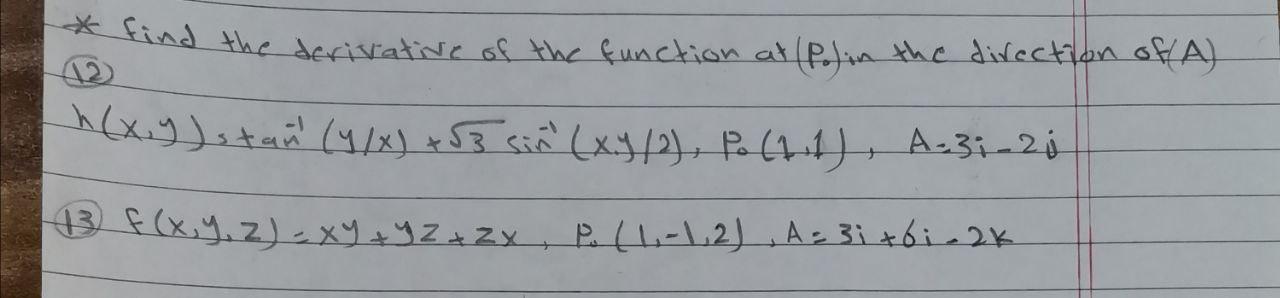 * find the derivative of the function at (P₀) in the direction of (A)
(12)
h(x,y) = tan⁻¹ (y/x) + √3 sin⁻¹ (x.y/2), P₀ (1,1), A=3i-2j
(13) f(x,y,z) = xy + yz + zx, P₀ (1,-1,2), A = 3i + 6i - 2k